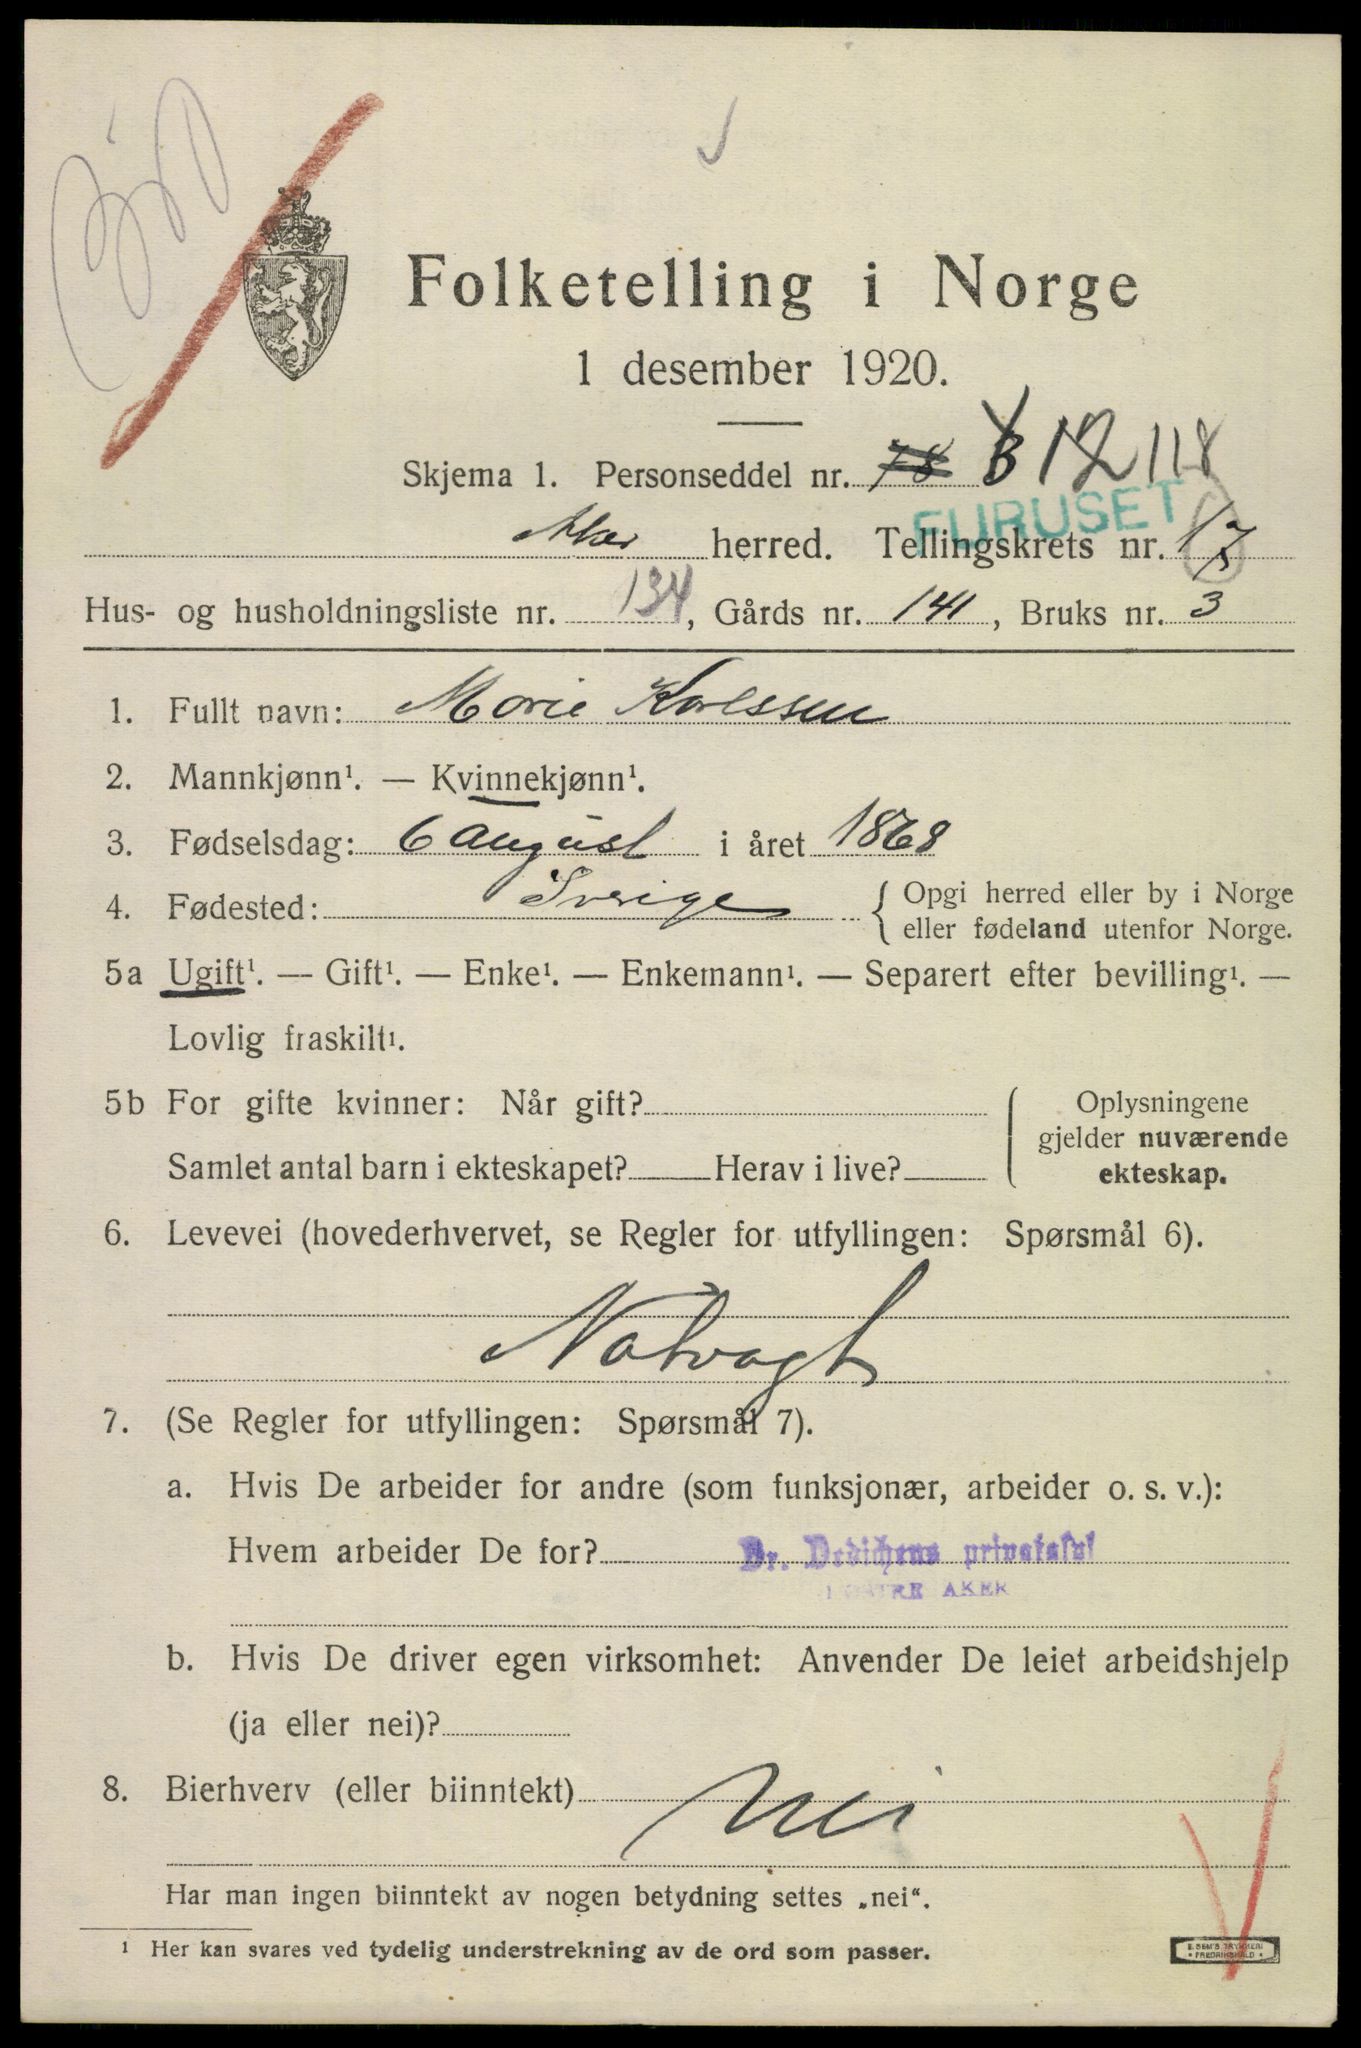 Folketelling i Norge
1 desember 1920.
Skjema 1. Personseddel nr. 78 12 118
FURUSET
Aker herred. Tellingskrets nr. 17
Hus- og husholdningsliste nr. 134, Gårds nr. 141, Bruks nr. 3
1. Fullt navn: Marie Karlssen
2. Mannkjønn¹. — Kvinnekjønn¹.
3. Fødselsdag: 6 august i året 1868
4. Fødested: Sverige { Opgi herred eller by i Norge
eller fødeland utenfor Norge.
5a Ugift¹. — Gift¹. — Enke¹. — Enkemann¹. — Separert efter bevilling¹. —
Lovlig fraskilt¹.
5b For gifte kvinner: Når gift?
Samlet antal barn i ekteskapet? Herav i live?
Oplysningene
gjelder nuværende
ekteskap.
6. Levevei (hovederhvervet, se Regler for utfyllingen: Spørsmål 6).
Natvagt
7. (Se Regler for utfyllingen: Spørsmål 7).
a. Hvis De arbeider for andre (som funksjonær, arbeider o. s. v.):
Hvem arbeider De for? Dr. Dedichens privatasyl
ØSTRE AKER
b. Hvis De driver egen virksomhet: Anvender De leiet arbeidshjelp
(ja eller nei)?
8. Bierhverv (eller biinntekt) Nei
Har man ingen biinntekt av nogen betydning settes „nei“.
¹ Her kan svares ved tydelig understrekning av de ord som passer.
E. SEM'S TRYKKERI
• FREDRIKSHALD •